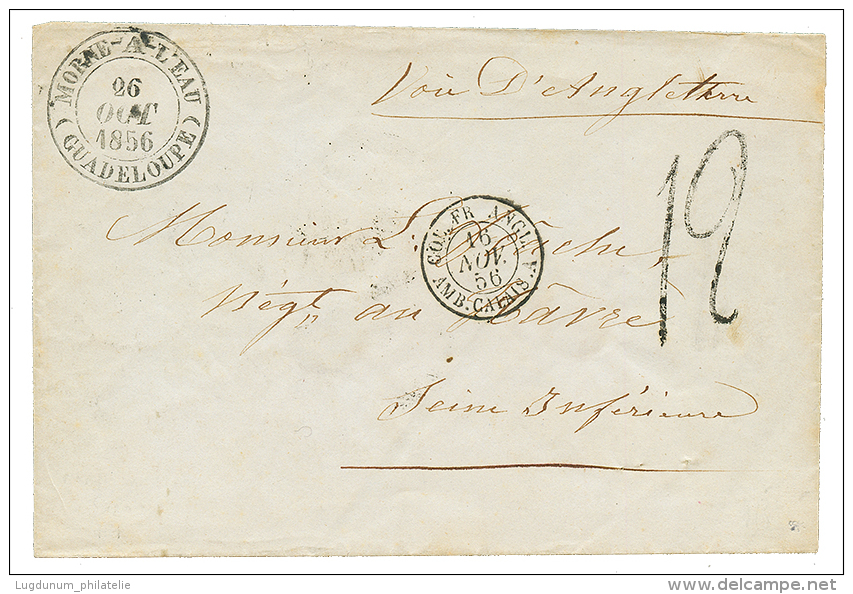 MORNE-A-L'EAU
26
OCT
1856
(GUADELOUPE)
Voie D'Angleterre
12
COL. FR. ANGL.
16
NOV.
56
AMB. CALAIS. A
Monsieur L.
Négt au Hâvre
Seine Inférieure
Lugdunum_philatelie
delcampe.net